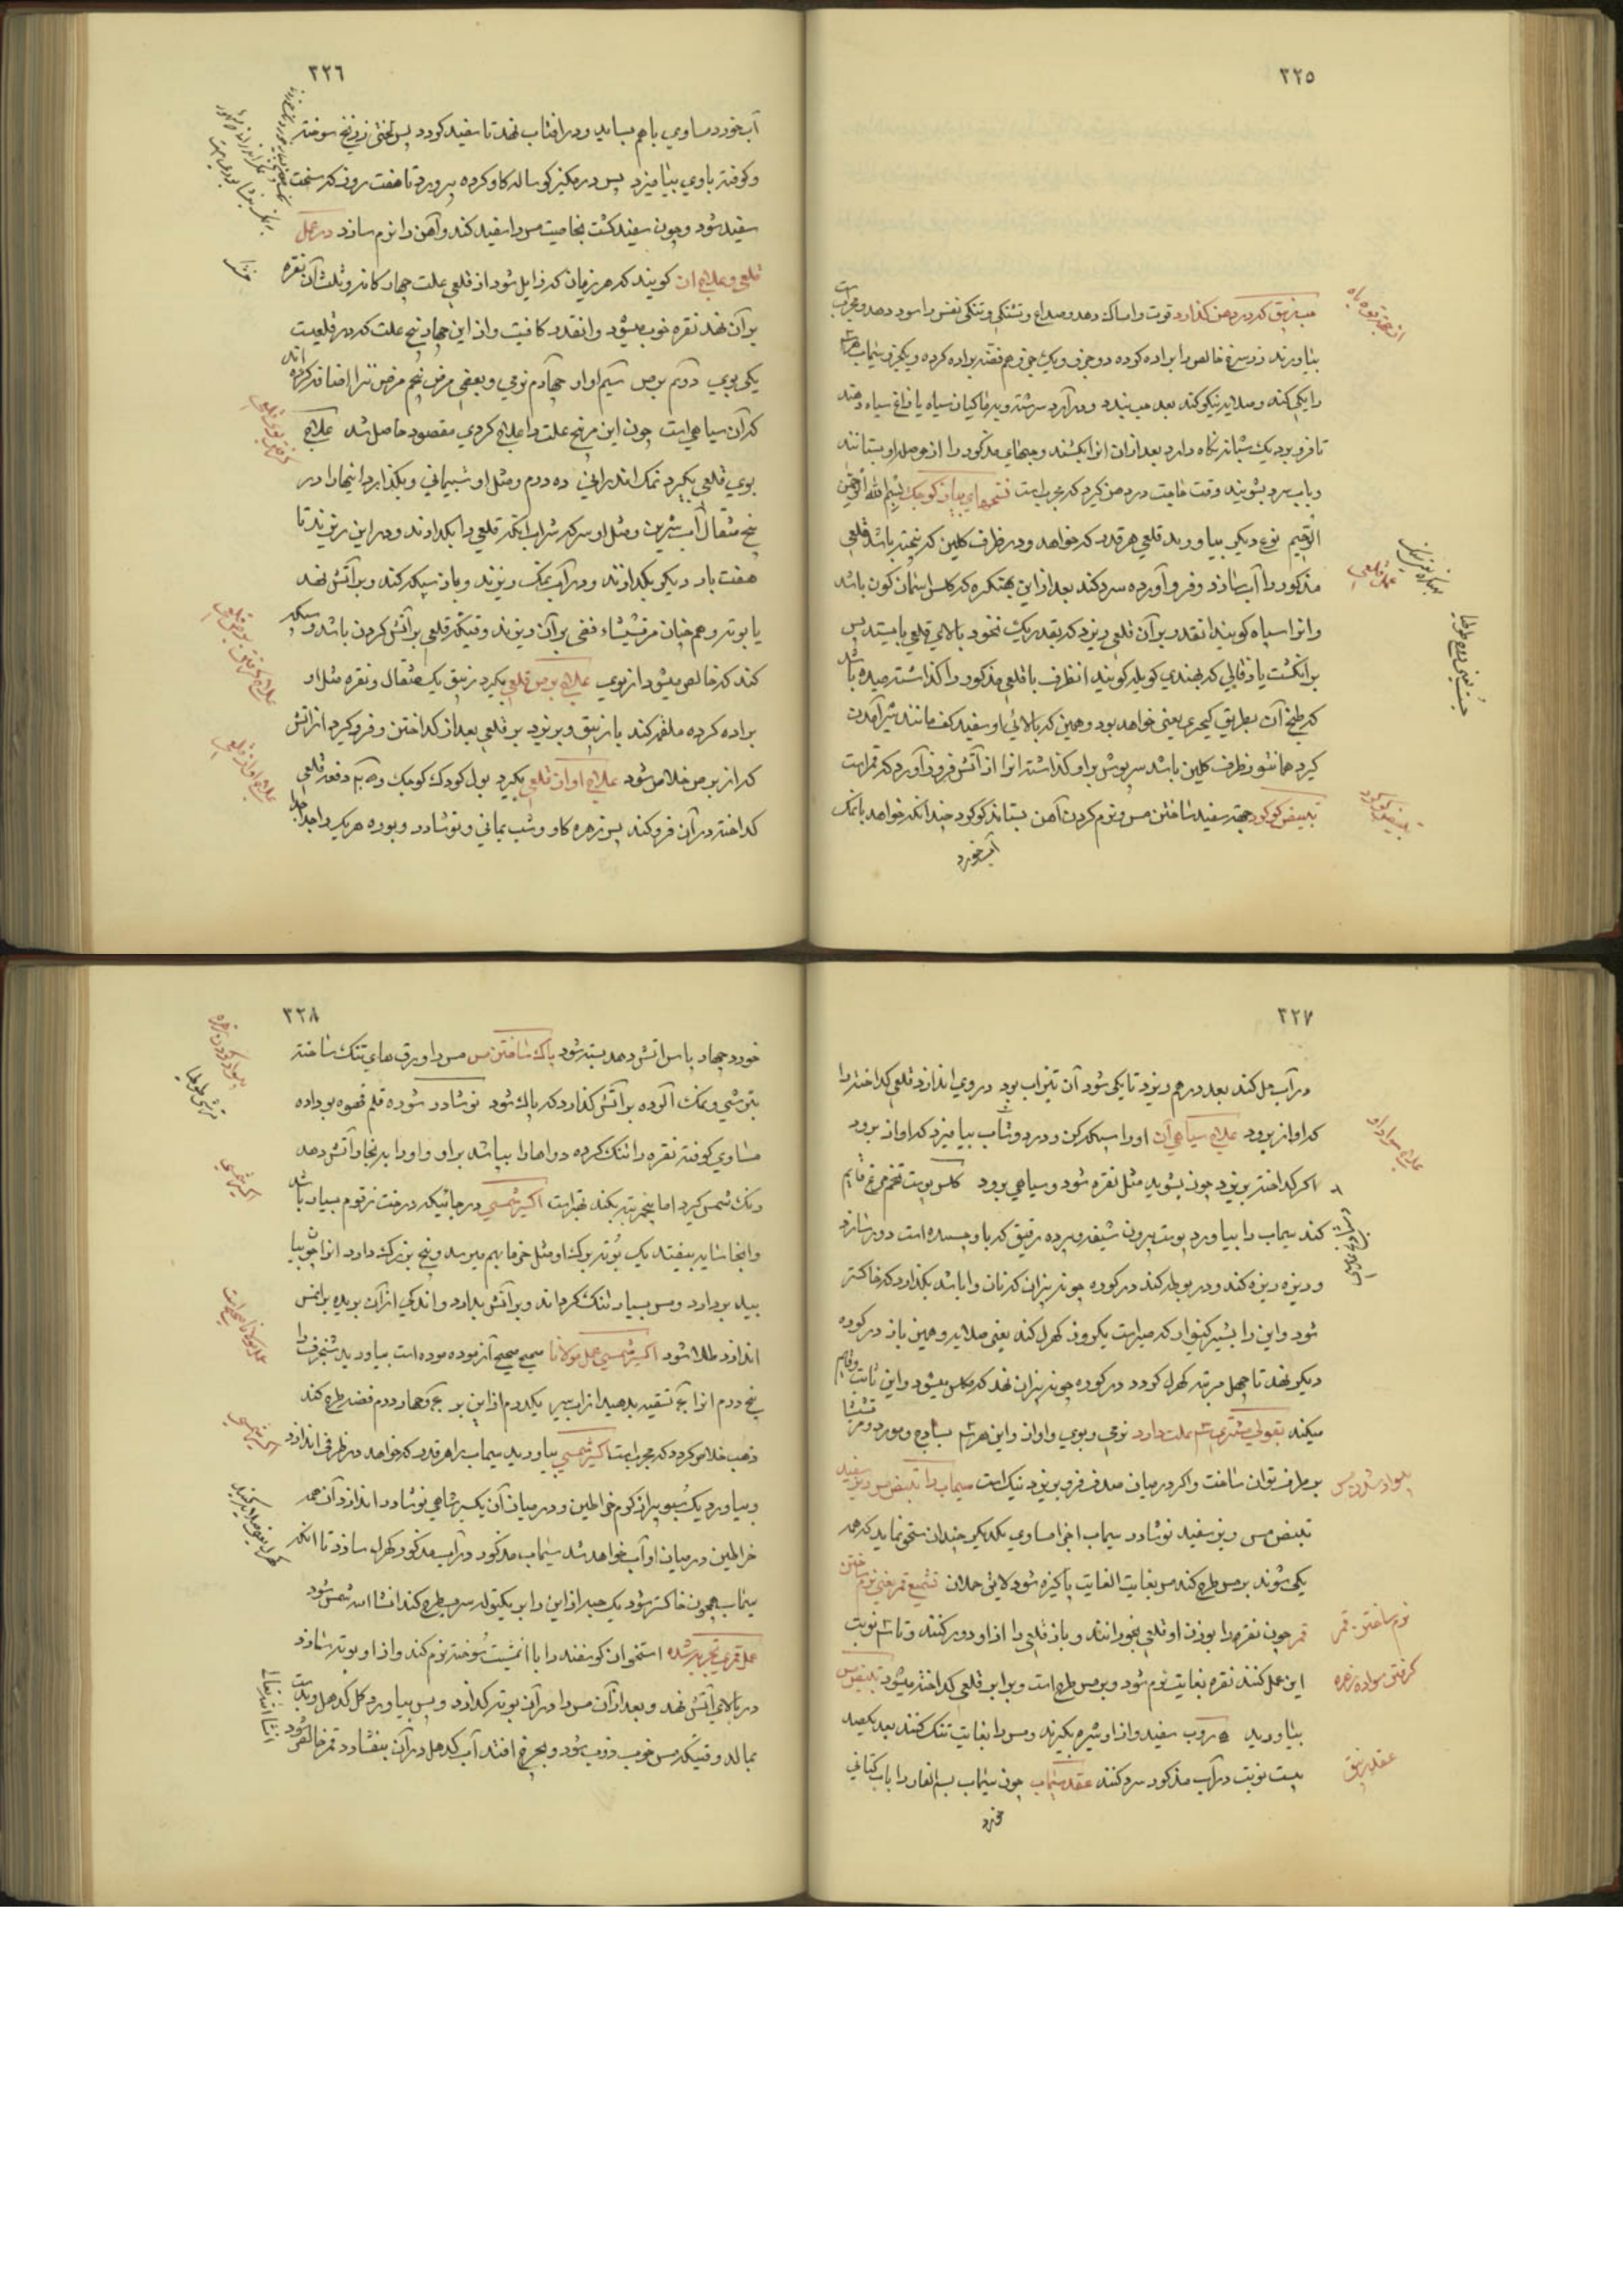 ۳۲۵
حب زیبق که در دهن کذارد قوت و امساک دهد و صداع و تشنکی و تنکی نفس را سود دهد و مجرب است
بیاورند زر سرخ خالص را براده کرده دو جزو و یک جزو هم فضه براده کرده و یکجزو سیماب هر سه
را یکی کند و صلایه نیکو کند بعد حب بندد و در آرد سرشته و بد ماکیان سیاه یا زاغ سیاه دهند
تا فرو برد یک شبانه نکاه دارد بعد از ان انرا بکشند و حبهای مذکور را از حوصله او بستانند
و باب سرد بشویند وقت حاجت در دهن کیرد که مجرب است نسخهای بیاض کوچک بسم الله الرحمن
الرحیم نوع دیکر بیاورید قلعی هر قدر که خواهد و در ظرف کلین که پخته باشد قلعی
مذکور را آب سازد و فرو آورده سرد کند بعد از این بهتکره که کلس اسمان کون باشد
و انرا سیاه کویند انقدر بر آن قلعی ریزد که بقدر یک نخود بالای قلعی بایستد پس
بر انکشت یا زقالی که بهندی کویله کویند انظرف با قلعی مذکور را کذاشته میده باشد
که طبخ آن بطریق کیچری یعنی خواهد بود و همین که بالائی او سفید کف مانند شیر آمدن
کیرد همانطور ظرف کلین باشد سرپوش بر او کذاشته انرا از آتش فرود آورد که قمر است
تبییض کوکرد جهت سفید ساختن مس و نرم کردن آهن بستاند کوکرد چندانکه خواهد با نمک
آب خورد
عمل قلعی
تبییض کوکرد
۳۲۶
آب خورد مساوی با هم بساید و در افتاب نهد تا سفید کردد پس لختی زرنیخ سوخته
و کوفته با وی بیامیزد پس در کمیز کوساله کاو کرده بپرورد تا هفت روز که سخت
سفید شود و چون سفید کشت بخاصیت مس را سفید کند و آهن را نرم سازد در عمل
قلعی و علاج ان کویند که هر زمان که زایل شود از قلعی علت چهار کانه و ثلث آن نقره
بر آن نهد نقره خوب میشود و انقدر کافیت و از این چهار پنج علت که در قلعیت
یکی بوی دوم برص سیم اواز چهارم نرمی و بعضی مرض پنجم مرض تنرا اضافه کرده اند
که آن سیاهی است چون این هر پنج علت را علاج کردی مقصود حاصل شد علاج
بوی قلعی بکیرد نمک اندرانی ده درم و مثل او شب یمانی و بکذارد اینها را در
پنج مثقال آب شیرین و مثل او سرکه شراب انکه قلعی را بکدازند و در این ریزند تا
هفت بار دیکر بکدازند و در آب نمک ریزند و باز سبیکه کند و بر آتش نهد
یا بوته و هم چنان مرقشیشاء فضی بر آن ریزند وقتیکه قلعی بر آتش کردن باشد و سبکه
کند که خالص میشود از بوی علاج برص قلعی بکیرد زیبق یک مثقال و نقره مثل او
براده کرده ملغمه کند با زیبق و بریزد بر قلعی بعد از کداختن و فرو کیرد از اتش
که از برص خلاص شود علاج اواز قلعی بکیرد بول کودک کوچک و ده دفعه قلعی
کداخته در آن فرو کند پس زهره کاو و شب یمانی و نوشادر و بوره هر یک را جدا جدا
علاج اواز قلعی
۳۲۷
در آب حل کند بعد در هم ریزد تا یکی شود آن تیزاب بود در وی اندازد قلعی کداخته را
که اواز برود علاج سیاهی آن او را سبیکه کن و در دوشاب بیامیزد که اواز برود
اکر کداخته بریزد چون بشوید مثل نقره شود و سیاهی برود کلس پوست تخم مرغ قایم
کند سیماب را بیاورد پوست بیرون شیفه و پرده رقیق که با و چسبیده است دور سازد
و ریزه ریزه کند و در بوطه کند در کوره چونه پزان که نان وا باشد بکذارد که خاکستر
شود و این را بشیر کنوار که صبر است یکروز کهرل کند یعنی صلایه و همین باز در کوره
دیکر نهد تا چهل مرتبه کهرل کردد در کوره چونه پزان نهد که کلس میشود و این ثابت و قایم
میکند بقولی مشتری سه علت دارد نرمی و بوی و اواز و این هر سه بساج و مورد و مرقشیشا
بر طرف توان ساخت و اکر در میان صدف فرو بریزد نیک است سیماب را تبییض مس و برنج سفید
تبییض مس و برنج سفید نوشادر سیماب اجزا مساوی یکدیکر چندان سحق نماید که همه
یکی شوند بر مس طرح کند مس بغایت الغایت پاکیزه شود لایق حملان تشمیع قمر یعنی نرم ساختن
قمر چون نقره را بوزن او قلعی بخورانند و باز قلعی را از او دور کنند و تا سه نوبت
این عمل کنند نقره بغایت نرم شود و بر مس طرح است و برابر قلعی کداخته میشود تبییض مس
بیاورید ه روب سفید و از او شیره بکیرند و مس را بغایت تنک کنند بعد یکصد
بیست نوبت در آب مذکور سرد کنند عقد سیماب چون سیماب بسم الفار را باب کتانی
خورد
نرم ساختن قمر
عقد زیبق
۳۲۸
خورد چهار پاس اتش دهد بسته شود پاک ساختن مس مس را ورق های تنک ساخته
بترشی و نمک آلوده بر آتش کذارد که پاک شود نوشادر شوره قلم قهوه بو داده
مساوی کوفته نقره را تنک کرده دواها را بپاشد بر او و او را بدنجار آتش دهد
رنک شمس کیرد اما پنج مرتبه بکند بهتر است اکسیر شمسی در جائیکه درخت زقوم بسیار باشد
و انجا شاید بیفتد یک بوته برک او مثل خرما بهم میرسد و بیخ بزرک دارد انرا جو بیا
بیله بردارد و مس بسیار تنک کرداند و بر آتش بدارد و اندکی از آن بریده بر ان مس
اندازد طلا شود اکسیر شمسی عمل مولانا صحیح صحیح آزموده است بیاورید شنجرف را
پنج درم انرا تسقیه بدهید از اب سیر یکدرم از این بر چهار درم فضه طرح کند
ذهب خلاص کردد که مجرب است اکسیر شمسی بیاورید سیماب را هر قدر که خواهد در ظرفی اندازد
و بیاورد یک سبو پر از کرم خراطین و در میان آن یکسیر شاهی نوشادر اندازد آن همه
خراطین در میان او آب خواهد شد سیماب مذکور در آب مذکور کهرل سازد تا انکه
سیماب همچون خاکستر شود یک حبه از این را بر یکتوله سرب طرح کند انشا الله شمس شود
عمل قمری تجربه شده استخوان کوسفند را با انکشت سوخته نرم کند و از او بوته سازد
در بالای آتش نهد و بعد از آن مس را در آن بوته کدازد و پس بیاورد کل کدهل و بدست
بمالد وقتیکه مس خوب ذوب شود و بچرخ افتد آب کدهل در آن بیفشارد قمر خالص شود
اکسیر شمسی
انشا الله تعالی